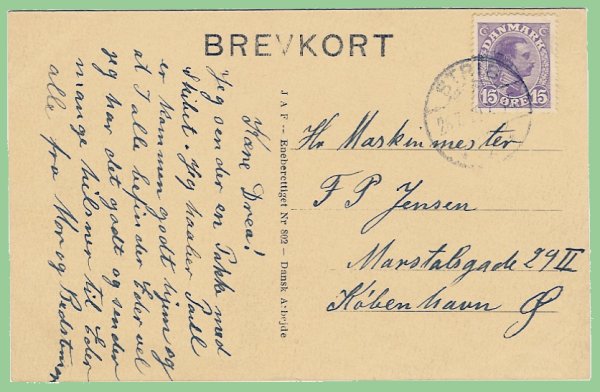 BREVKORT
DANMARK
15 ØRE 15
STRIB
JAF - Eneberettiget Nr 802 - Dansk Arbejde
Kære Drea!
Jeg sender en Pakke med
Skibet. Jeg haaber Poul
er kommen godt hjem og
at I alle befinder Eder vel
jeg har det godt og sender
mange hilsner til Eder
alle fra Mor og Bedstemor
Hr Maskinmester
F P Jensen
Marstalsgade 29 II
København Ø